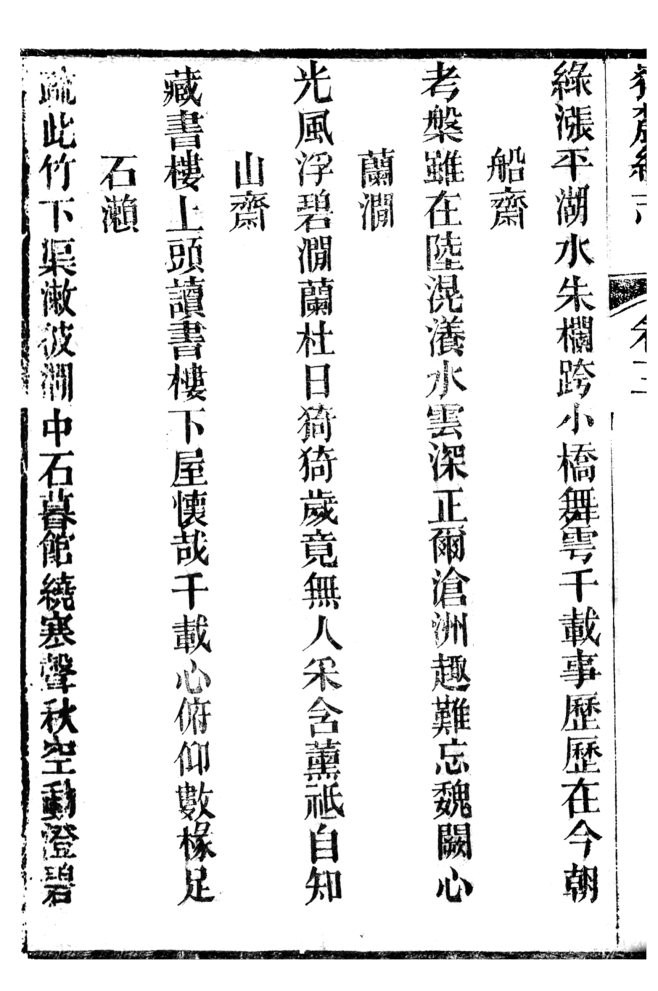 卷二
綠漲平湖水朱欄跨小橋舞雩千載事歷歷在今朝
船齋
考槃雖在陸滉瀁水雲深正爾滄洲趣難忘魏闕心
蘭澗
光風浮碧澗蘭杜日猗猗歲竟無人采含薰祗自知
山齋
藏書樓上頭讀書樓下屋懷哉千載心俯仰數椽足
石瀨
疏此竹下渠漱彼澗中石暮館繞寒聲秋空動澄碧